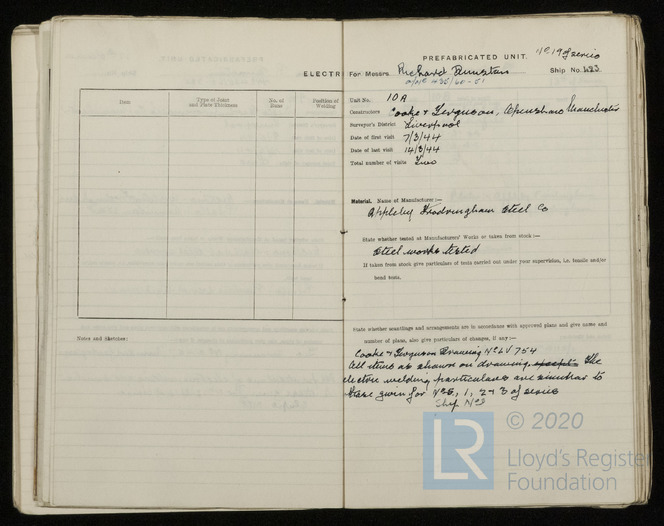 ELECTR
Date
Type of Joint
and Plate Thickness
No. of
Runs
Position of
Welding
Notes and Sketches:
No. 19 of series
PREFABRICATED UNIT.
For Messrs. Richard Dunston Ship No. 423
Unit No. 10A
Constructors Cooke & Ferguson, Openshaw Manchester
Surveyor's District Liverpool
Date of first visit 7/3/44
Date of last visit 14/3/44
Total number of visits Two
Material. Name of Manufacturer:—
Appleby Frodringham Steel Co
State whether tested at Manufacturers' Works or taken from stock:—
Steel works tested
If taken from stock give particulars of tests carried out under your supervision, i.e. tensile and/or
bend tests.
State whether scantlings and arrangements are in accordance with approved plans and give name and
number of plans, also give particulars of changes, if any:—
Cooke & Ferguson Drawing No LV 754
All items as shown on drawing except The
electric welding particulars are similar to
those given for Nos, 1, 2 & 3 of series
Ship Nos
© 2020
LR
Lloyd's Register
Foundation